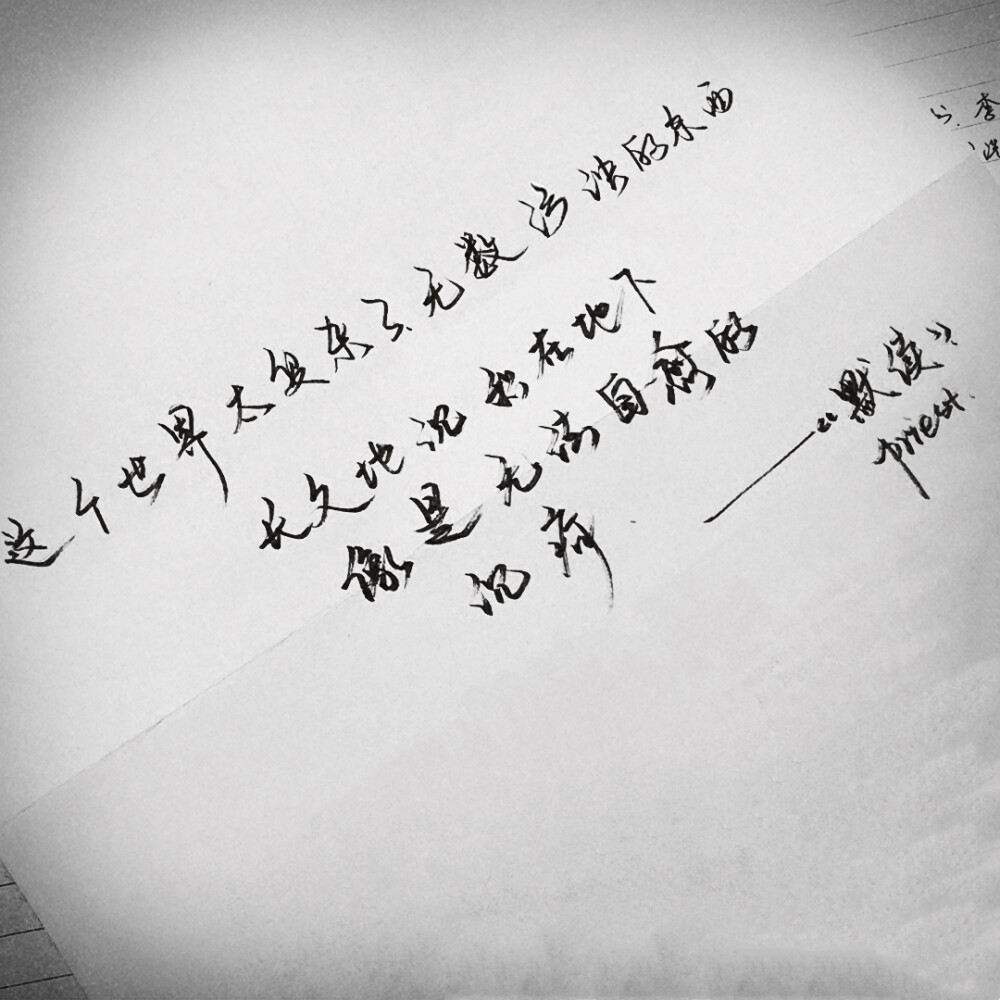 这个世界太复杂了无数污浊的东西
长久地沉积在地下
像是无法自愈的
沉疴
——《默读》
priest.
李